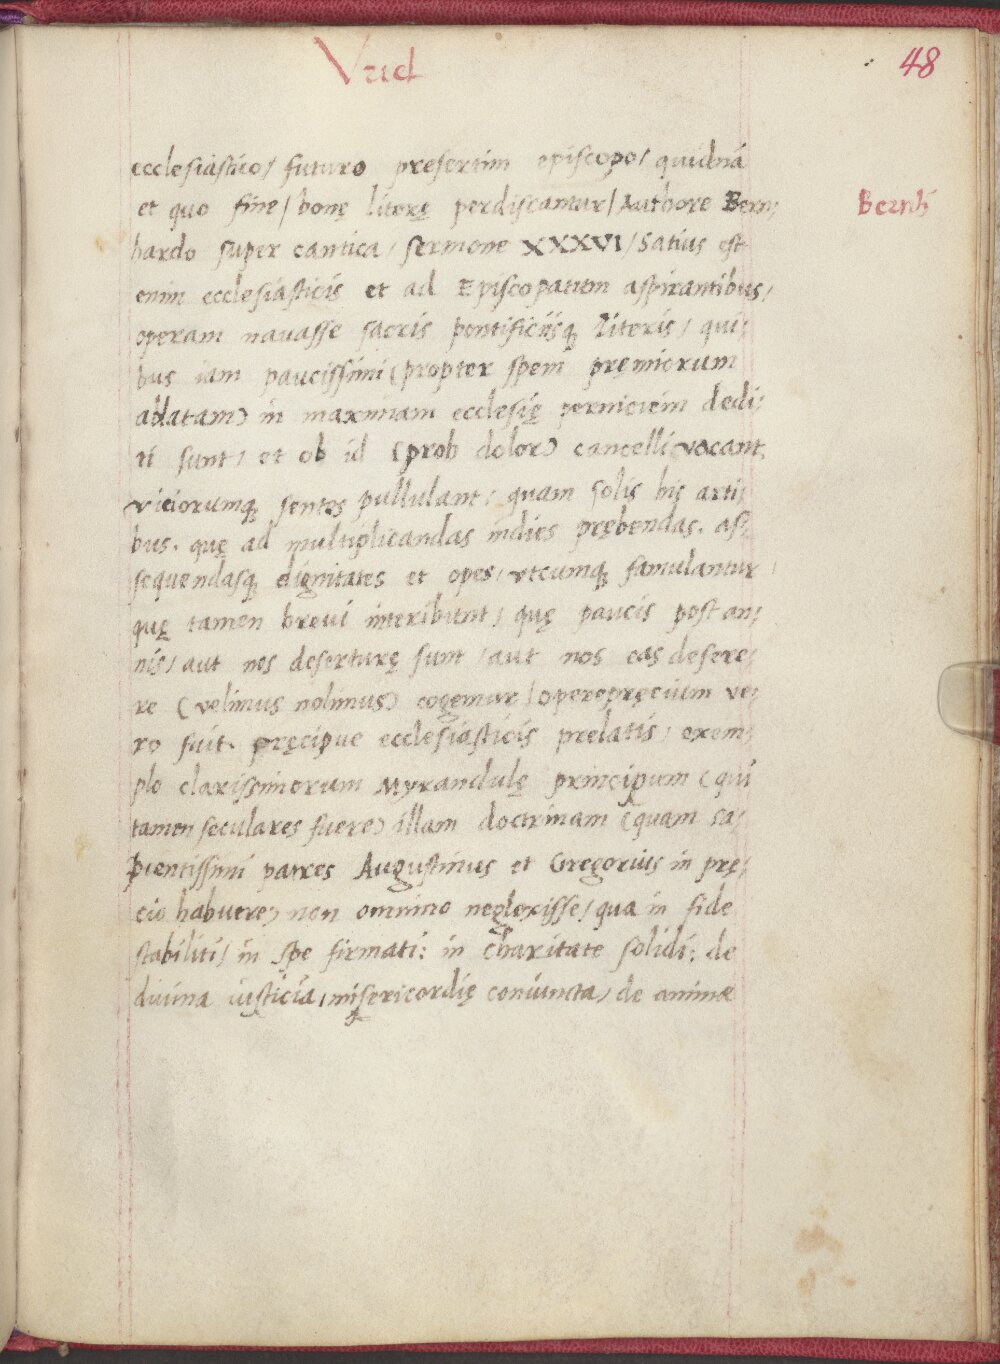 Vriel
48
ecclesiastico/ futuro presertim episcopo/ quidná
et quo fine/ bonę literę perdiscantur/ Authore Bern:
Bernh
hardo super cantica/ sermone XXXVI/ Satius est
enim ecclesiasticis et ad Episcopatum aspirantibus/
operam nauasse sacris pontificiisq literis/ qui:
bus iam paucissimi (propter spem premiorum
ablatam) in maximam ecclesię perniciem dedi:
ti sunt/ et ob id (proh dolor) cancelli vocant
viciorumq sentes pullulant: quam solis his arti:
bus. quę ad multiplicandas indies prębendas. as:
sequendasq dignitates et opes/ vtcumq famulantur/
quę tamen breui interibunt/ quę paucis post an:
nis/ aut nos deserturę sunt/ aut nos eas desere:
re (velimus nolimus) cogemur/ Operepręcium ve:
ro fuit. pręcipue ecclesiasticis prelatis/ exem:
plo clarissimorum Myrandulę principum (qui
tamen seculares fuere) illam doctrinam (quam sa:
pientissimi patres Augustinus et Gregorius in prę:
cio habuere) non omnino neglexisse/ qua in fide
stabiliti/ in spe firmati: in charitate solidi: de
diuina iusticia/ misericordię coniuncta/ de animę